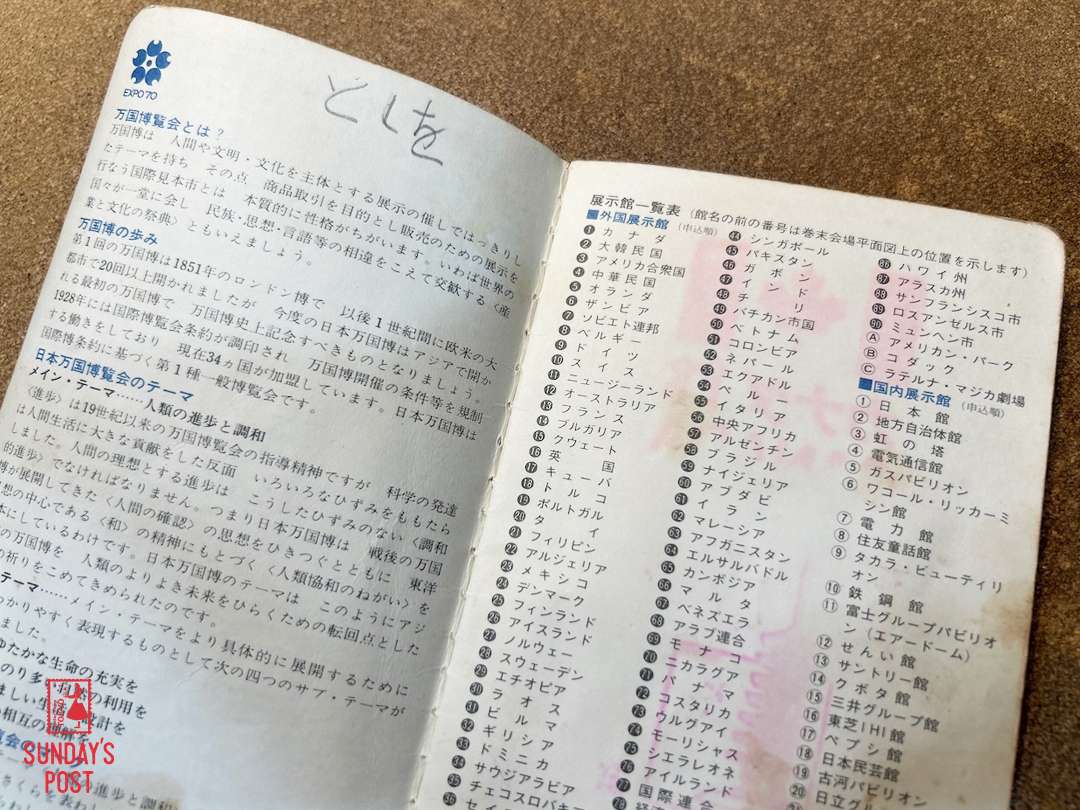 EXPO'70
としを
万国博覧会とは？
万国博は　人間や文明・文化を主体とする展示の催しではっきりし
たテーマを持ち　その点　商品取引を目的とし販売のための展示を
行なう国際見本市とは　本質的に性格がちがいます。いわば世界の
国々が一堂に会し　民族・思想・言語等の相違をこえて交歓する〈産
業と文化の祭典〉ともいえましょう。
万国博の歩み
第1回の万国博は1851年のロンドン博で　以後1世紀間に欧米の大
都市で20回以上開かれましたが　今度の日本万国博はアジアで開か
れる最初の万国博で　万国博史上記念すべきものとなりましょう。
1928年には国際博覧会条約が調印され　万国博開催の条件等を規制
する働きをしており　現在34ヵ国が加盟しています。日本万国博は
国際博条約に基づく第1種一般博覧会です。
日本万国博覧会のテーマ
メイン・テーマ……人類の進歩と調和
〈進歩〉は19世紀以来の万国博覧会の指導精神ですが　科学の発達
は人間生活に大きな貢献をした反面　いろいろなひずみをもたら
しました。人間の理想とする進歩は　こうしたひずみのない〈調和
的進歩〉でなければなりません。つまり日本万国博は　戦後の万国
博が展開してきた〈人間の確認〉の思想をひきつぐとともに　東洋
思想の中心である〈和〉の精神にもとづく〈人類協和のねがい〉を
体にしているわけです。日本万国博のテーマは　このようにアジ
の万国博を　人類のよりよき未来をひらくための転回点とした
の祈りをこめてきめられたのです。
テーマ……メイン・テーマをより具体的に展開するために
わかりやすく表現するものとして次の四つのサブ・テーマが
ました。
ゆたかな生命の充実を
のり多い
の利用を
ましい生活
設計を
相互の理解を
の進歩と調和
さくらを表わし
展示館一覧表（館名の前の番号は巻末会場平面図上の位置を示します）
■外国展示館（申込順）
❶カナダ
❷大韓民国
❸アメリカ合衆国
❹中華民国
❺オランダ
❻ザンビア
❼ソビエト連邦
❽ベルギー
❾ドイツ
❿スイス
⓫ニュージーランド
⓬オーストラリア
⓭フランス
⓮ブルガリア
⓯クウェート
⓰英国
⓱キューバ
⓲トルコ
⓳ポルトガル
⓴タイ
21フィリピン
22アルジェリア
23メキシコ
24デンマーク
25フィンランド
26アイスランド
27ノルウェー
28スウェーデン
29エチオピア
30ラオス
31ビルマ
32ギリシア
33ドミニカ
34サウジアラビア
35チェコスロバキ
36セイ
44シンガポール
45パキスタン
46ガボン
47インド
48チリ
49バチカン市国
50ベトナム
51コロンビア
52ネパール
53エクアドル
54ペルー
55イタリア
56中央アフリカ
57アルゼンチン
58ブラジル
59ナイジェリア
60アブダビ
61イラン
62マレーシア
63アフガニスタン
64エルサルバドル
65カンボジア
66マルタ
67ベネズエラ
68アラブ連合
69モナコ
70ニカラグア
71パナマ
72コスタリカ
73ウルグアイ
74モーリシャス
75シエラレオネ
76アイルランド
77国際連合
78経
86ハワイ州
87アラスカ州
88サンフランシスコ市
89ロスアンゼルス市
90ミュンヘン市
Ⓐアメリカン・パーク
Ⓑコダック
Ⓒラテルナ・マジカ劇場
■国内展示館（申込順）
①日本館
②地方自治体館
③虹の塔
④電気通信館
⑤ガスパビリオン
⑥ワコール・リッカーミ
シン館
⑦電力館
⑧住友童話館
⑨タカラ・ビューティリ
オン
⑩鉄鋼館
⑪富士グループパビリオ
ン（エアードーム）
⑫せんい館
⑬サントリー館
⑭クボタ館
⑮三井グループ館
⑯東芝IHI館
⑰ペプシ館
⑱日本民芸館
⑲古河パビリオン
⑳日立
TOKYO
SUNDAY'S
POST